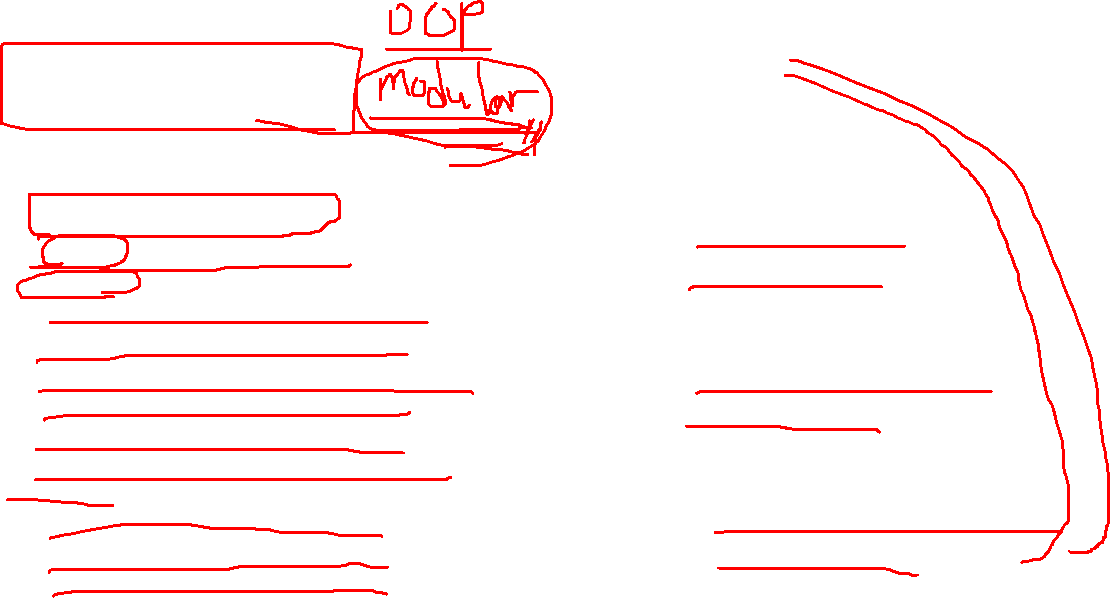 OOP
modular